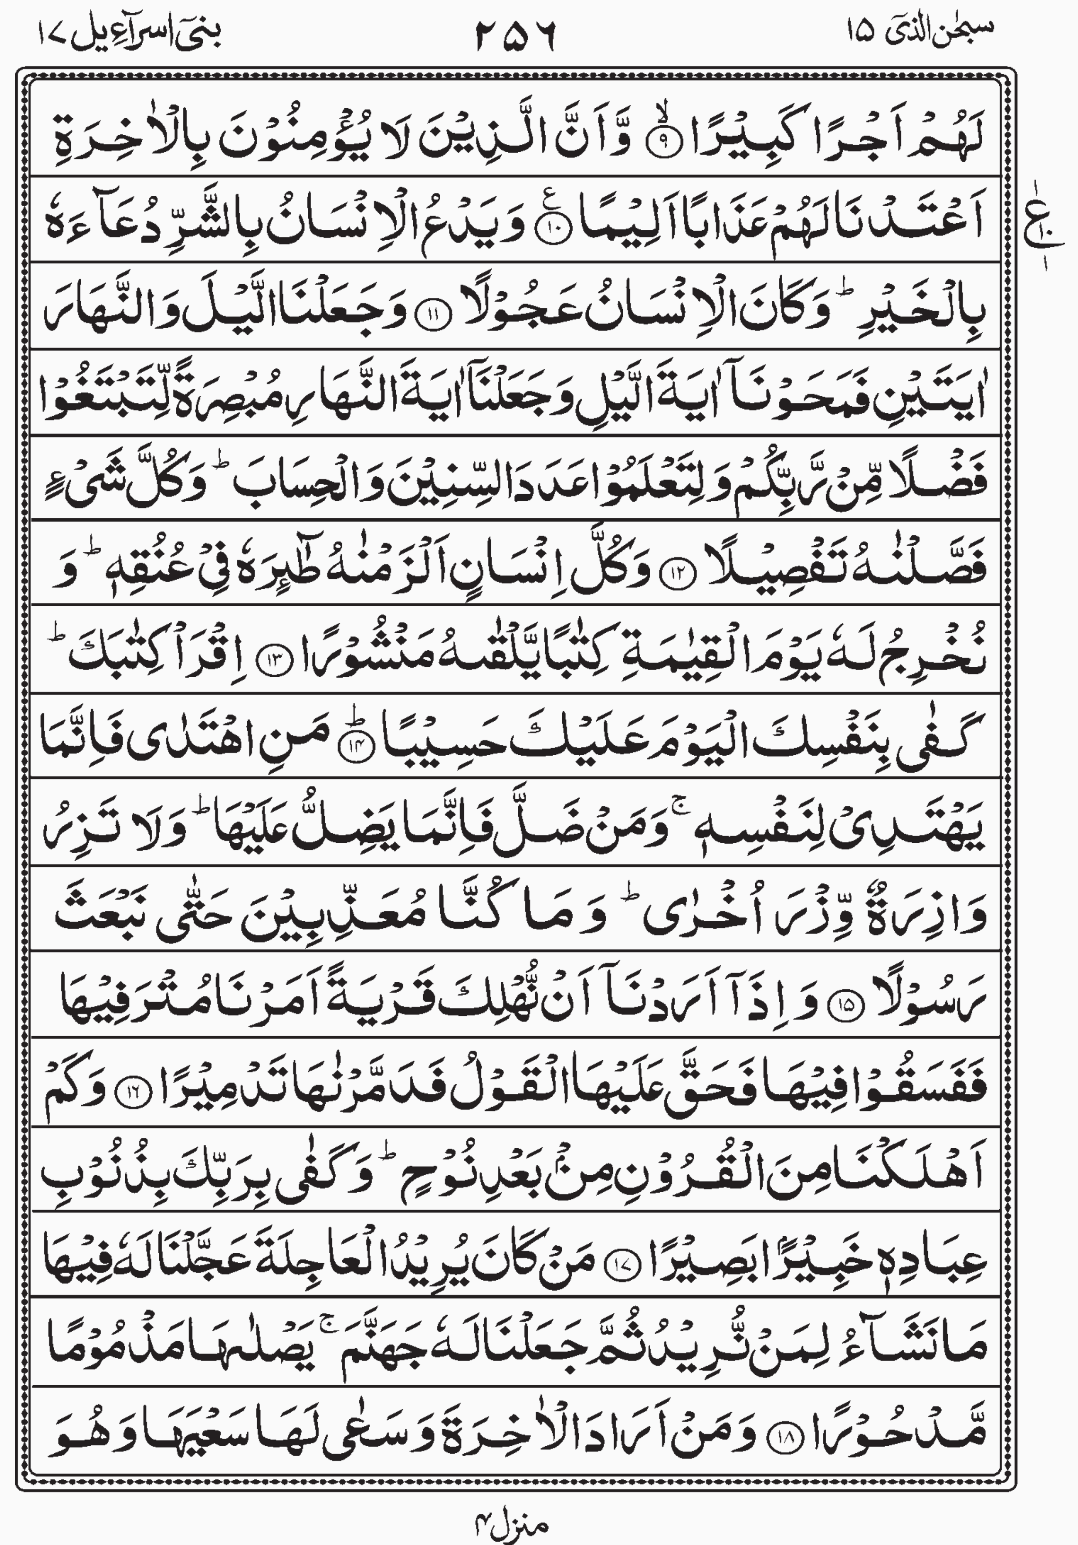 سبحٰن الذیٓ ۱۵ ۲۵۶ بنیٓ اسرآءیل ۱۷
لَهُمْ اَجْرًا كَبِیْرًاۙ ۹ وَّ اَنَّ الَّذِیْنَ لَا یُؤْمِنُوْنَ بِالْاٰخِرَةِ
اَعْتَدْنَا لَهُمْ عَذَابًا اَلِیْمًا ࣖ ۱۰ وَ یَدْعُ الْاِنْسَانُ بِالشَّرِّ دُعَآءَهٗ
ع ۱ ۱۰ ۱
بِالْخَیْرِ ؕ وَ كَانَ الْاِنْسَانُ عَجُوْلًا ۱۱ وَ جَعَلْنَا الَّیْلَ وَ النَّهَارَ
اٰیَتَیْنِ فَمَحَوْنَاۤ اٰیَةَ الَّیْلِ وَ جَعَلْنَاۤ اٰیَةَ النَّهَارِ مُبْصِرَةً لِّتَبْتَغُوْا
فَضْلًا مِّنْ رَّبِّكُمْ وَ لِتَعْلَمُوْا عَدَدَ السِّنِیْنَ وَ الْحِسَابَ ؕ وَ كُلَّ شَیْءٍ
فَصَّلْنٰهُ تَفْصِیْلًا ۱۲ وَ كُلَّ اِنْسَانٍ اَلْزَمْنٰهُ طٰٓىِٕرَهٗ فِیْ عُنُقِهٖ ؕ وَ
نُخْرِجُ لَهٗ یَوْمَ الْقِیٰمَةِ كِتٰبًا یَّلْقٰىهُ مَنْشُوْرًا ۱۳ اِقْرَاْ كِتٰبَكَ ؕ
كَفٰی بِنَفْسِكَ الْیَوْمَ عَلَیْكَ حَسِیْبًا ؕ ۱۴ مَنِ اهْتَدٰی فَاِنَّمَا
یَهْتَدِیْ لِنَفْسِهٖ ۚ وَ مَنْ ضَلَّ فَاِنَّمَا یَضِلُّ عَلَیْهَا ؕ وَ لَا تَزِرُ
وَازِرَةٌ وِّزْرَ اُخْرٰی ؕ وَ مَا كُنَّا مُعَذِّبِیْنَ حَتّٰی نَبْعَثَ
رَسُوْلًا ۱۵ وَ اِذَاۤ اَرَدْنَاۤ اَنْ نُّهْلِكَ قَرْیَةً اَمَرْنَا مُتْرَفِیْهَا
فَفَسَقُوْا فِیْهَا فَحَقَّ عَلَیْهَا الْقَوْلُ فَدَمَّرْنٰهَا تَدْمِیْرًا ۱۶ وَ كَمْ
اَهْلَكْنَا مِنَ الْقُرُوْنِ مِنْۢ بَعْدِ نُوْحٍ ؕ وَ كَفٰی بِرَبِّكَ بِذُنُوْبِ
عِبَادِهٖ خَبِیْرًۢا بَصِیْرًا ۱۷ مَنْ كَانَ یُرِیْدُ الْعَاجِلَةَ عَجَّلْنَا لَهٗ فِیْهَا
مَا نَشَآءُ لِمَنْ نُّرِیْدُ ثُمَّ جَعَلْنَا لَهٗ جَهَنَّمَ ۚ یَصْلٰىهَا مَذْمُوْمًا
مَّدْحُوْرًا ۱۸ وَ مَنْ اَرَادَ الْاٰخِرَةَ وَ سَعٰی لَهَا سَعْیَهَا وَ هُوَ
منزل ۴